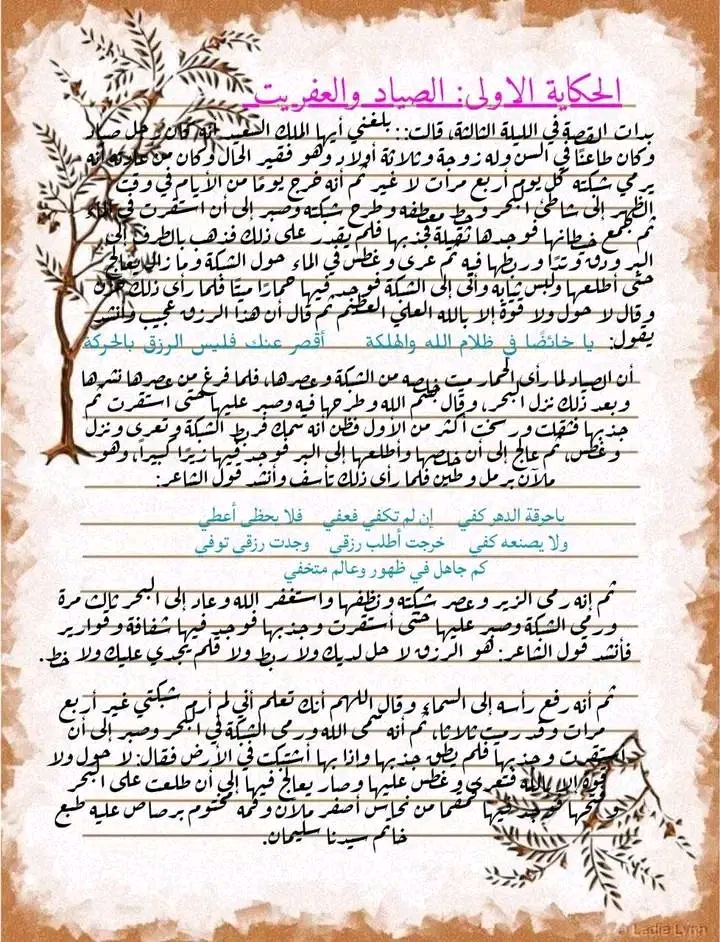 الحكاية الاولى: الصياد والعفريت
بدات القصة في الليلة الثالثة، قالت:: بلغني أيها الملك السعيد أنه كان رجل صياد
وكان طاعنًا في السن وله زوجة وثلاثة أولاد وهو فقير الحال وكان من عادته أنه
يرمي شبكته كل يوم أربع مرات لا غير ثم أنه خرج يومًا من الأيام في وقت
الظهر إلى شاطئ البحر وحط معطفه وطرح شبكته وصبر إلى أن استقرت في الماء
ثم جمع خيطانها فوجدها ثقيلة فجذبها فلم يقدر على ذلك فذهب بالطرف إلى
البر ودق وتدًا وربطها فيه ثم عرى وغطس في الماء حول الشبكة وما زال يعالج
حتى أطلعها ولبس ثيابه وأتى إلى الشبكة فوجد فيها حمارًا ميتًا فلما رأى ذلك حزن
وقال لا حول ولا قوة إلا بالله العلي العظيم ثم قال أن هذا الرزق عجيب وأنشد
يقول: يا خائضًا في ظلام الله والهلكة أقصر عنك فليس الرزق بالحركة
أن الصياد لما رأى الحمار ميت خلصه من الشبكة وعصرها، فلما فرغ من عصرها نشرها
وبعد ذلك نزل البحر، وقال بسم الله وطرحها فيه وصبر عليها حتى استقرت ثم
جذبها فثقلت ورسخت أكثر من الأول فظن أنه سمك فربط الشبكة وتعرى ونزل
وغطس، ثم عالج إلى أن خلصها وأطلعها إلى البر فوجد فيها زيرًا كبيرًا، وهو
ملآن برمل وطين فلما رأى ذلك تأسف وأنشد قول الشاعر:
ياحرقة الدهر كفي إن لم تكفي فعفي فلا يحظى أعطي
ولا يصنعه كفي خرجت أطلب رزقي وجدت رزقي توفي
كم جاهل في ظهور وعالم متخفي
ثم إنه رمى الزير وعصر شبكته ونظفها واستغفر الله وعاد إلى البحر ثالث مرة
ورمى الشبكة وصبر عليها حتى أستقرت وجذبها فوجد فيها شفافة وقوارير
فأنشد قول الشاعر: هو الرزق لا حل لديك ولا ربط ولا قلم يجدي عليك ولا خط.
ثم أنه رفع رأسه إلى السماء وقال اللهم أنك تعلم أني لم أرم شبكتي غير أربع
مرات وقد رميت ثلاثا، ثم أنه سمى الله ورمى الشبكة في البحر وصبر إلى أن
أستقرت وجذبها فلم يطق جذبها وإذا بها أشتبكت في الأرض فقال: لا حول ولا
قوة إلا بالله فتعرى وغطس عليها وصار يعالج فيها إلى أن طلعت على البحر
وفتحها فوجد فيها قمقما من نحاس أصفر ملآن وفمه مختوم برصاص عليه طبع
خاتم سيدنا سليمان.
Ladie Lynn